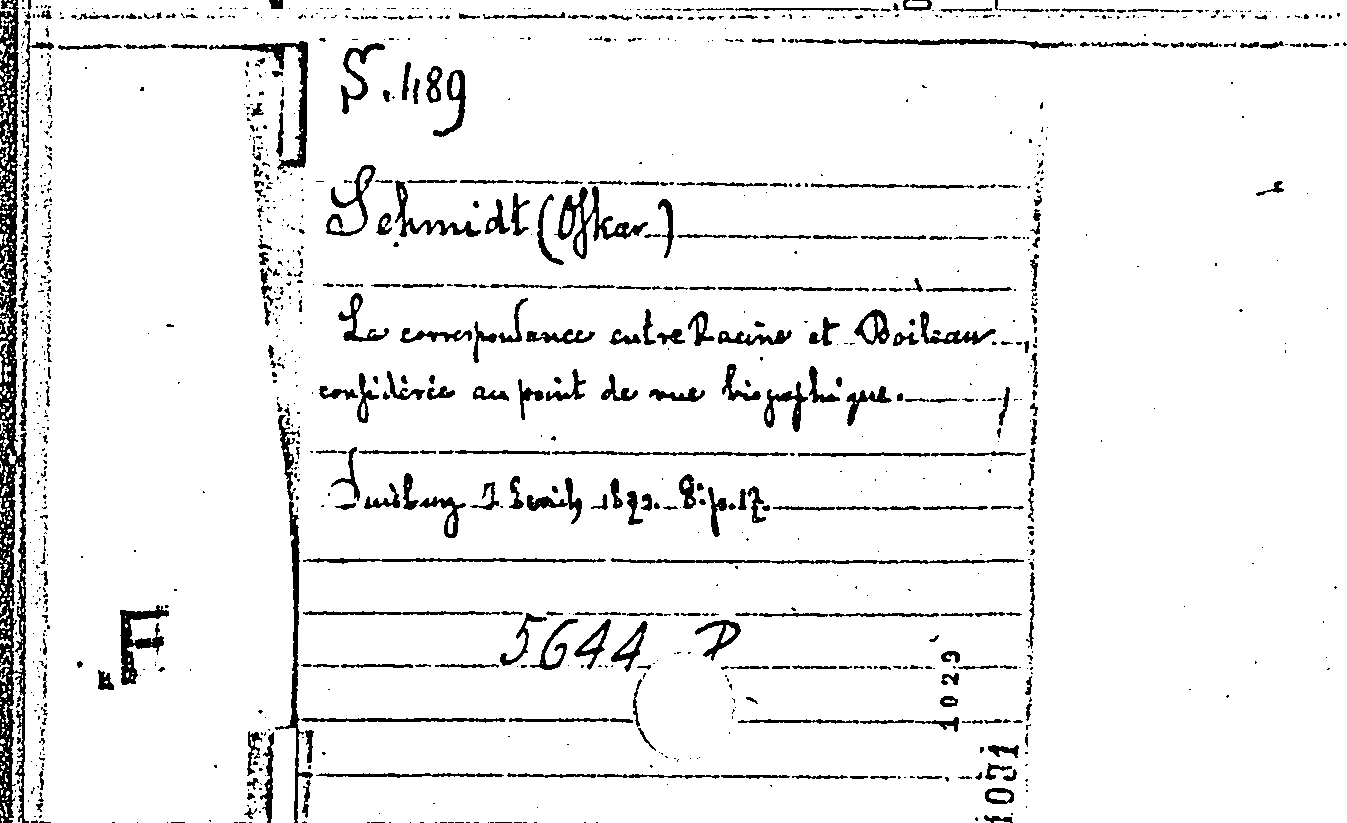 S. 1189
Schmidt (Oſkar)
La correspondance entre Racine et Boileau
conſidérée au point de vue biographique.
Duisburg J 187 8: p. 17.
5644 P
1029
1031